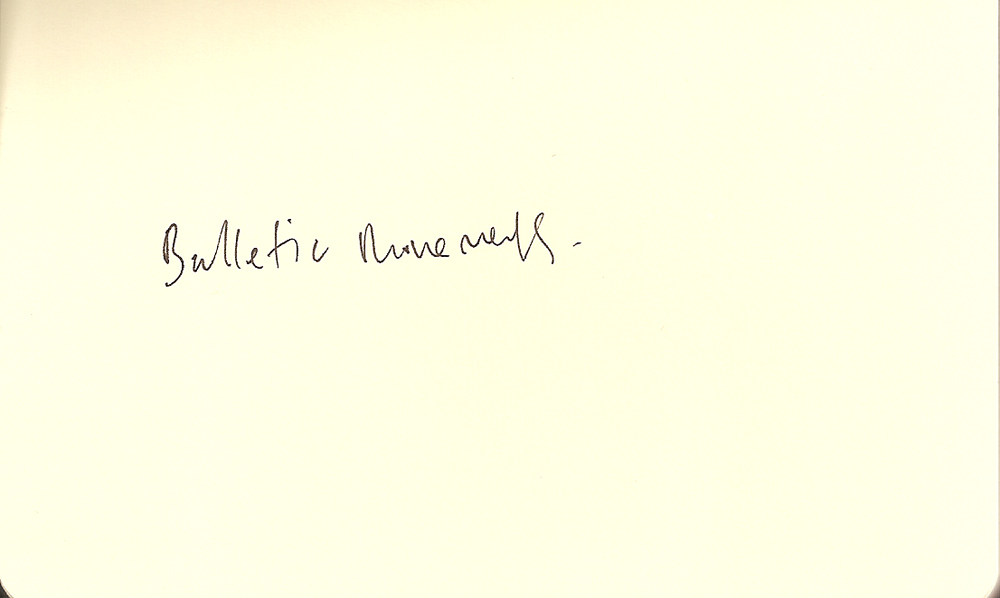 Balletic Movements.